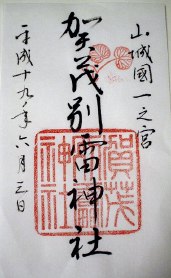 山城國一之宮
加茂別雷神社
平成十九年六月三日
賀茂
別雷
神社